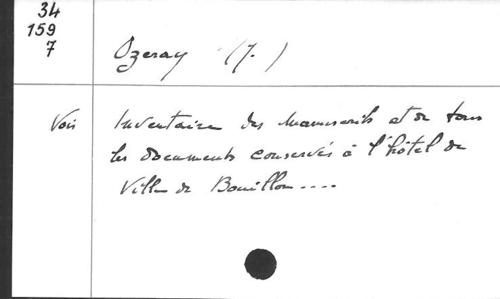 34
159
7
Ozeray (J.)
Voir Inventaire des Manuscrits et de tous
les documents conservés à l'hôtel de
Ville de Bouillon....